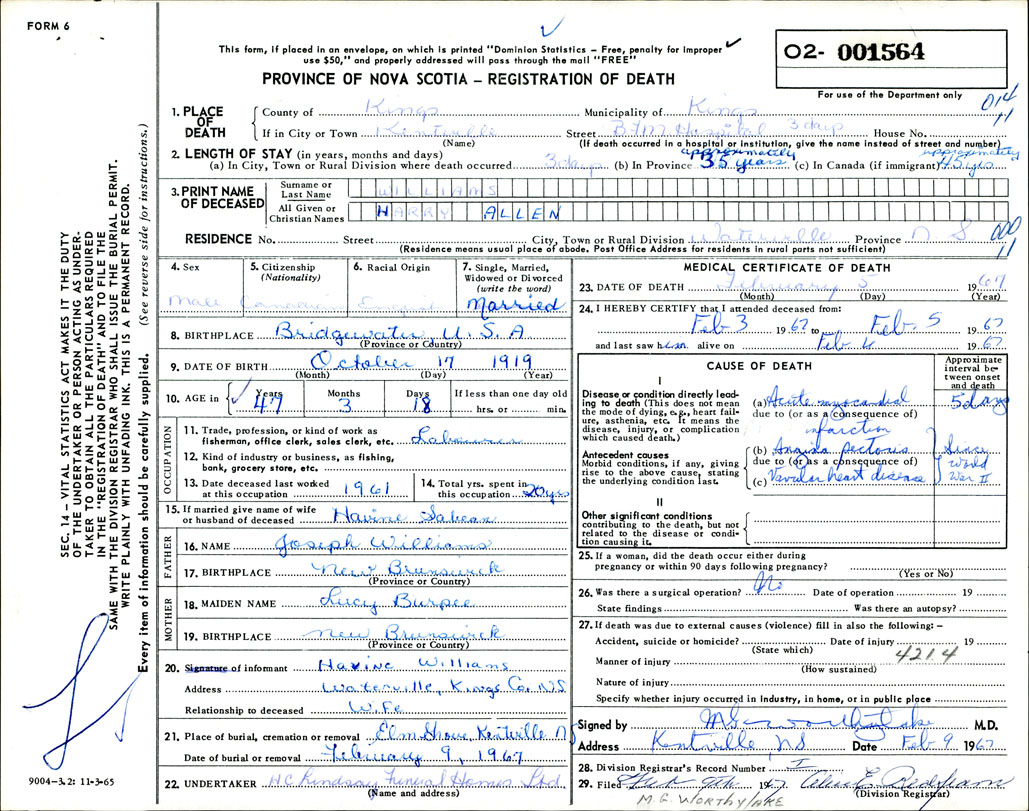 FORM 6
This form, if placed in an envelope, on which is printed "Dominion Statistics – Free, penalty for improper
use $50," and properly addressed will pass through the mail "FREE"
PROVINCE OF NOVA SCOTIA – REGISTRATION OF DEATH
O2- 001564
For use of the Department only
014
11
1. PLACE OF DEATH
County of Kings Municipality of Kings
If in City or Town Kentville Street B.F.M. Hospital 3 days House No.
(Name) (If death occurred in a hospital or institution, give the name instead of street and number)
2. LENGTH OF STAY (in years, months and days)
(a) In City, Town or Rural Division where death occurred 3 days (b) In Province approximately 35 years (c) In Canada (if immigrant) approximately 45 yrs
3. PRINT NAME OF DECEASED
Surname or Last Name WILLIAMS
All Given or Christian Names HARRY ALLEN
RESIDENCE No. Street City, Town or Rural Division Waterville Province N S
(Residence means usual place of abode. Post Office Address for residents in rural parts not sufficient)
000
11
4. Sex Male
5. Citizenship (Nationality) Canadian
6. Racial Origin
7. Single, Married, Widowed or Divorced (write the word) Married
8. BIRTHPLACE Bridgewater, U.S.A
(Province or Country)
9. DATE OF BIRTH October 17 1919
(Month) (Day) (Year)
10. AGE in Years 47 Months 3 Days 18 If less than one day old hrs. or min.
OCCUPATION
11. Trade, profession, or kind of work as fisherman, office clerk, sales clerk, etc. Labourer
12. Kind of industry or business, as fishing, bank, grocery store, etc.
13. Date deceased last worked at this occupation 1961
14. Total yrs. spent in this occupation 20 yrs
15. If married give name of wife or husband of deceased Havine Sabean
FATHER
16. NAME Joseph Williams
17. BIRTHPLACE New Brunswick
(Province or Country)
MOTHER
18. MAIDEN NAME Lucy Burpee
19. BIRTHPLACE New Brunswick
(Province or Country)
20. Signature of informant Havine Williams
Address Waterville, Kings Co. N.S
Relationship to deceased Wife
21. Place of burial, cremation or removal Elm Grove, Kentville N S
Date of burial or removal February 9, 1967
22. UNDERTAKER H.C. Lindsay Funeral Home Ltd
(Name and address)
MEDICAL CERTIFICATE OF DEATH
23. DATE OF DEATH February 5 1967
(Month) (Day) (Year)
24. I HEREBY CERTIFY that I attended deceased from:
Feb 3 1967 to Feb. 5 1967
and last saw him alive on Feb 4 1967
CAUSE OF DEATH
Approximate interval between onset and death
I
Disease or condition directly leading to death (This does not mean the mode of dying, e.g., heart failure, asthenia, etc. It means the disease, injury, or complication which caused death.)
(a) Acute myocardial 5 days
due to (or as a consequence of)
infarction
Antecedent causes
Morbid conditions, if any, giving rise to the above cause, stating the underlying condition last.
(b) Angina pectoris Since World War II
due to (or as a consequence of)
(c) Valvular heart disease
II
Other significant conditions
contributing to the death, but not related to the disease or condition causing it.
25. If a woman, did the death occur either during
pregnancy or within 90 days following pregnancy?
(Yes or No)
26. Was there a surgical operation? No Date of operation 19
State findings Was there an autopsy?
27. If death was due to external causes (violence) fill in also the following: –
Accident, suicide or homicide? Date of injury 19
(State which) 4214
Manner of injury
(How sustained)
Nature of injury
Specify whether injury occurred in industry, in home, or in public place
Signed by M G Worthylake M.D.
Address Kentville, NS Date Feb 9 1967
28. Division Registrar's Record Number
29. Filed Feb 9th 1967
(Division Registrar)
M. G. WORTHYLAKE
SEC. 14 – VITAL STATISTICS ACT MAKES IT THE DUTY
OF THE UNDERTAKER OR PERSON ACTING AS UNDER-
TAKER TO OBTAIN ALL THE PARTICULARS REQUIRED
IN THE "REGISTRATION OF DEATH" AND TO FILE THE
SAME WITH THE DIVISION REGISTRAR WHO SHALL ISSUE THE BURIAL PERMIT.
WRITE PLAINLY WITH UNFADING INK. THIS IS A PERMANENT RECORD.
Every item of information should be carefully supplied. (See reverse side for instructions.)
9004-3.2: 11-3-65